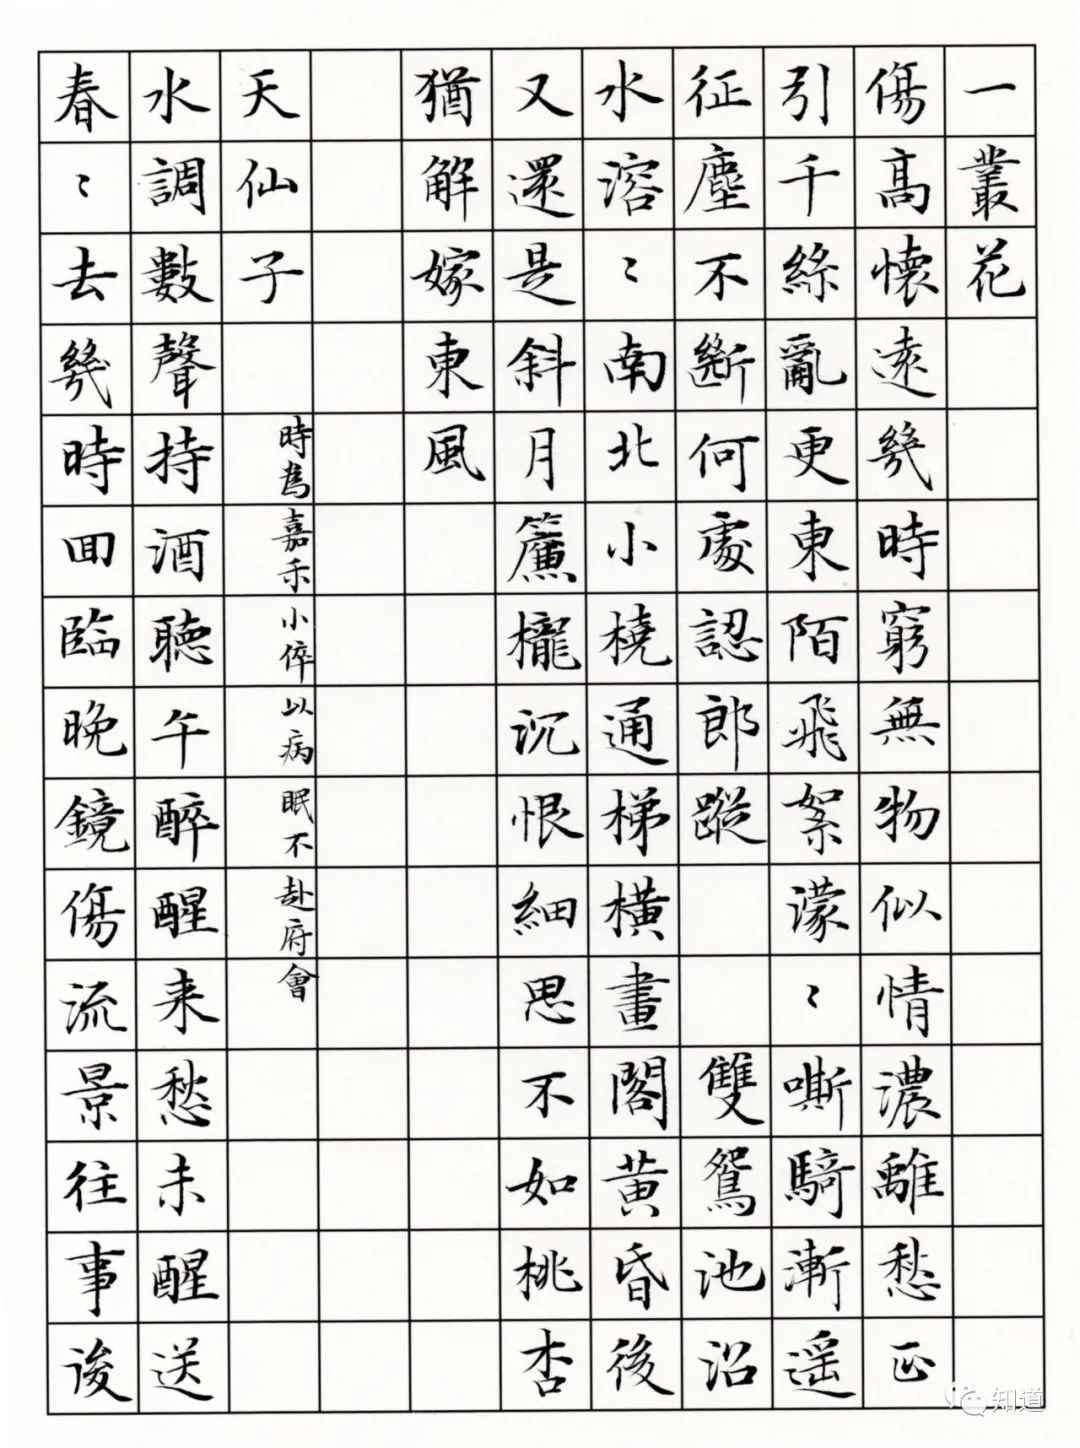 一叢花
傷高懷遠幾時窮無物似情濃離愁正
引千絲亂更東陌飛絮濛〻嘶騎漸遥
征塵不斷何處認郎蹤 雙鴛池沼
水溶〻南北小橈通梯橫畫閣黃昏後
又還是斜月簾櫳沉恨細思不如桃杏
猶解嫁東風
天仙子 時為嘉禾小倅以病眠不赴府會
水調數聲持酒聽午醉醒来愁未醒送
春〻去幾時回臨晚鏡傷流景往事後
知道